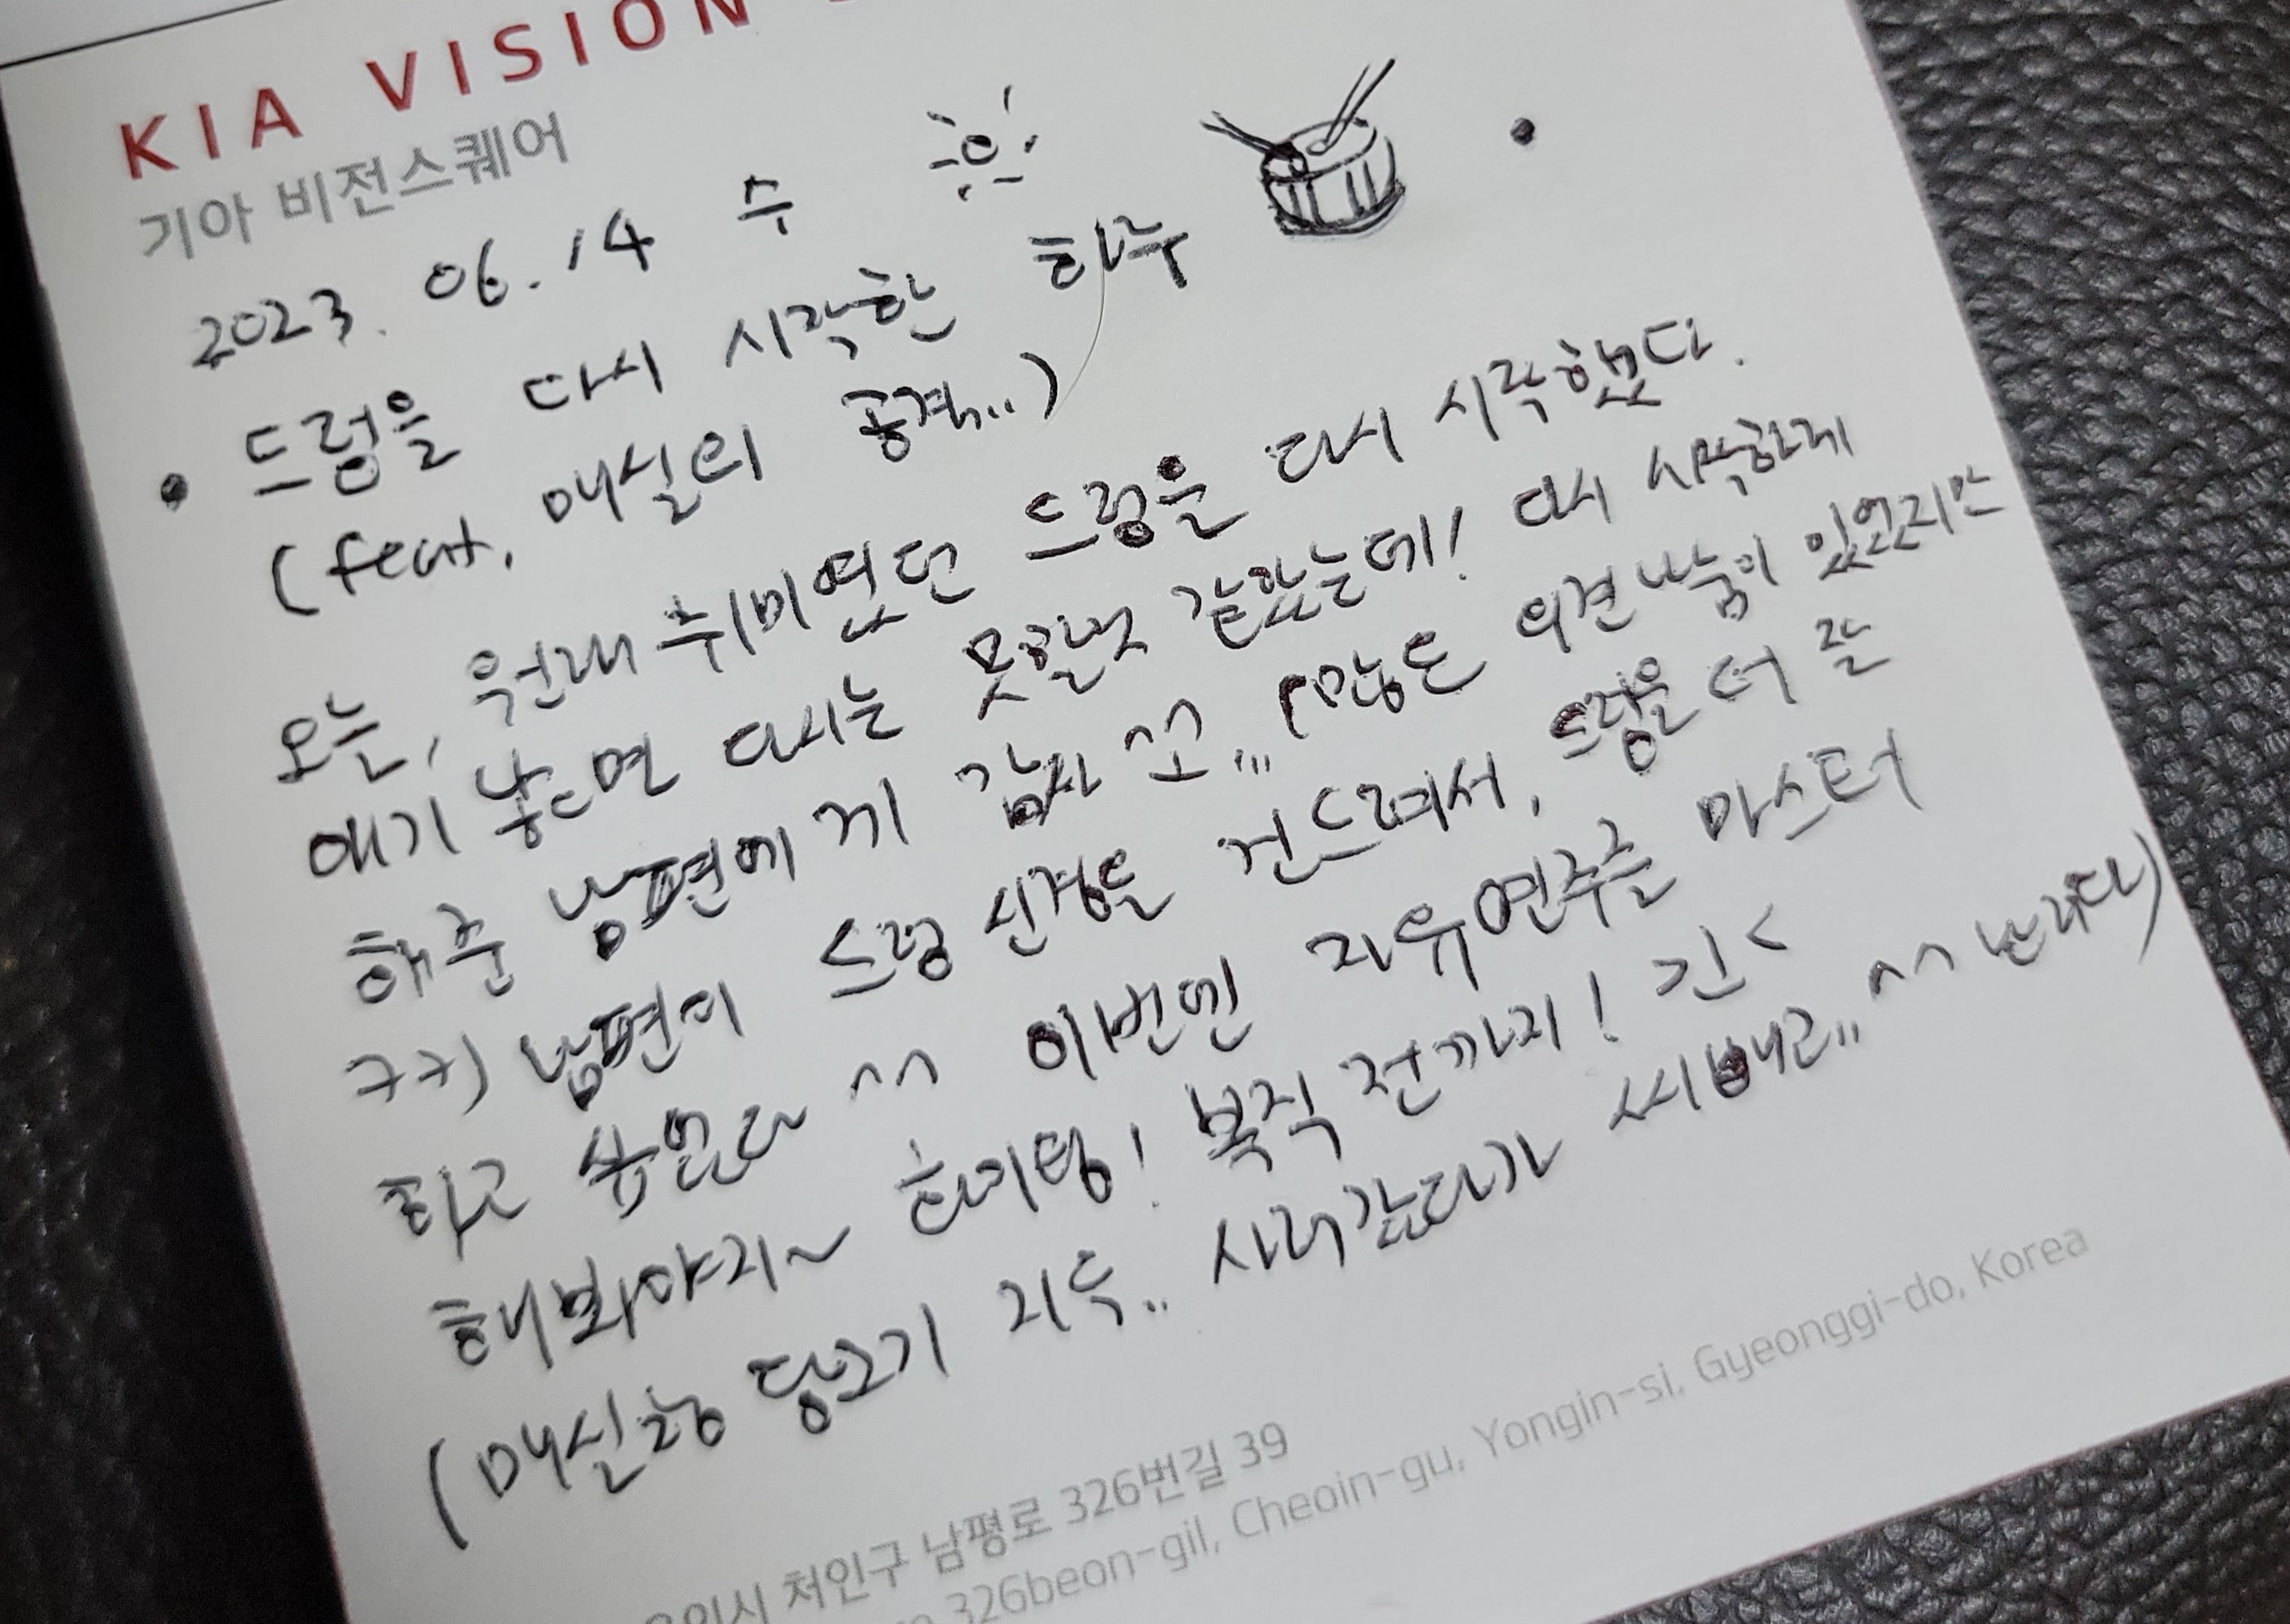 KIA VISION
기아 비전스퀘어
2023. 06. 14 수
• 드럼을 다시 시작한 하루 •
(feat. 매실의 공격..)
오늘, 원래 취미였던 드럼을 다시 시작했다.
애기 낳으면 다시는 못할것 같았는데! 다시 시작하게
해준 남편에게 감사 ^^... (많은 의견 나눔이 있었지만
ㅋㅋ) 남편이 드럼 신경을 건드려서, 드럼을 더 잘
하고 싶었다 ^^ 이번엔 자유연주를 마스터
해봐야지~ 화이팅! 복직 전까지! 긴<
(매실청 담그기 지옥.. 시러갔다가 씨빼고.. ^^
처인구 남평로 326번길 39
326beon-gil, Cheoin-gu, Yongin-si, Gyeonggi-do, Korea